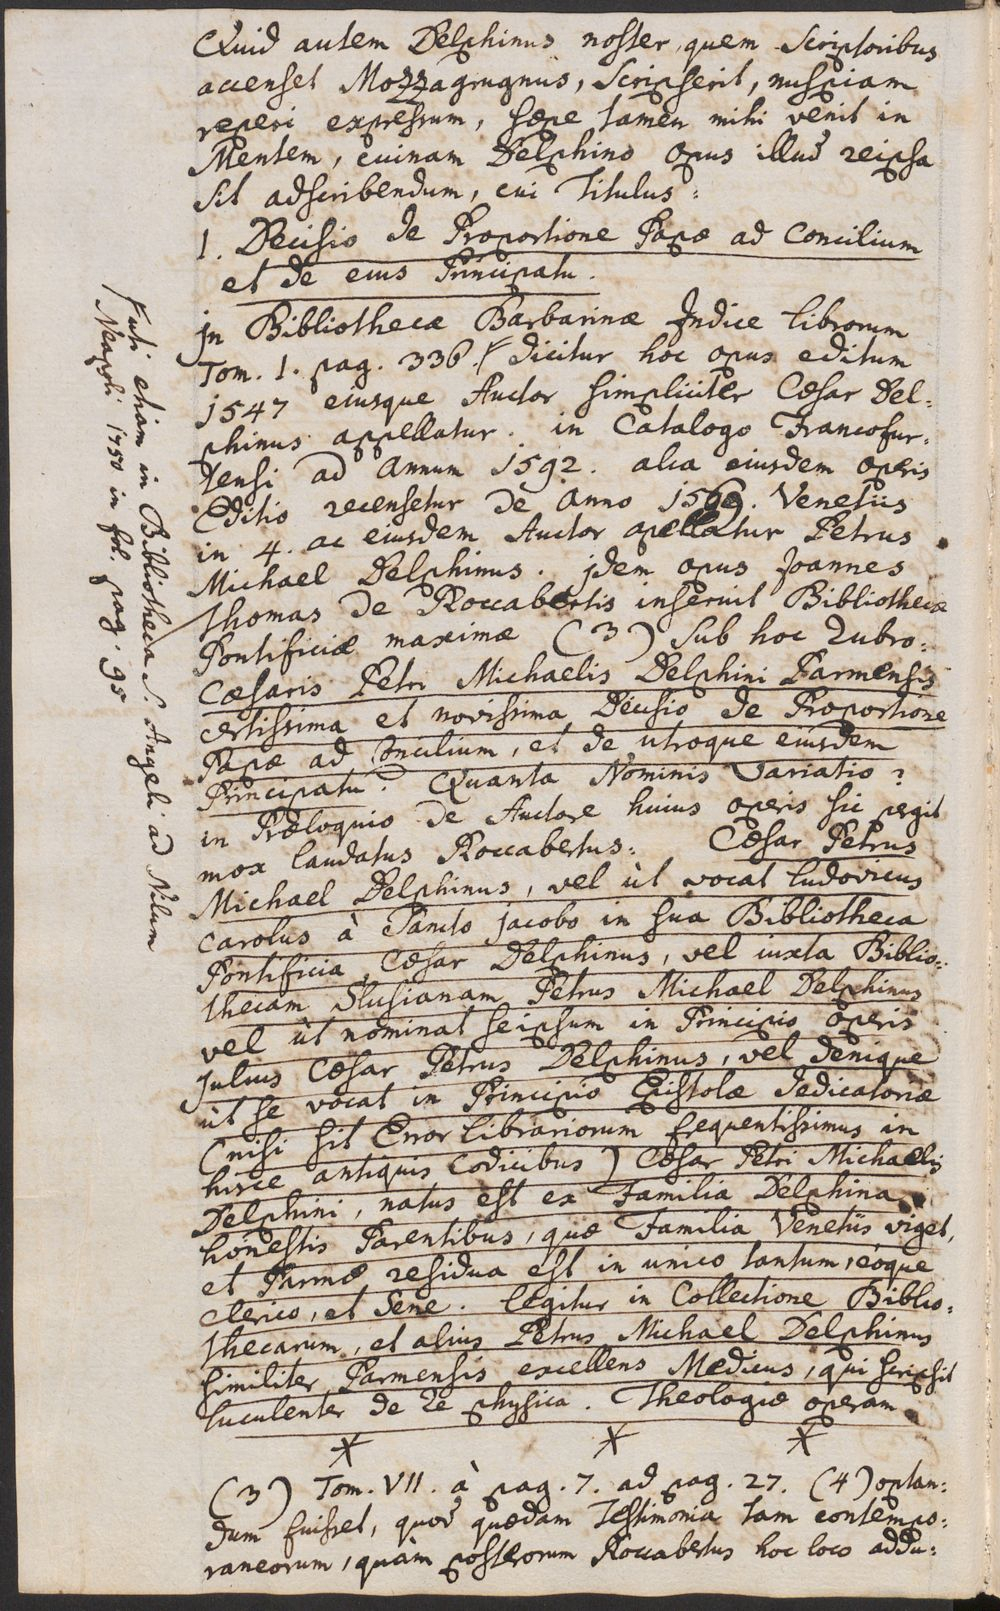 Quid autem Delphinus noster, quem Scriptoribus
accenset Mozzagrugnus, Scripserit, nuspiam
reperi expressum, sæpe tamen mihi venit in
Mentem, cuinam Delphino Opus illud reipsa
sit adscribendum, cui Titulus:
1. Decisio de Proportione Papæ ad Concilium
et de eius Principatu.
jn Bibliothecæ Barbarinæ Indice librorum
Tom. 1. pag. 336. / dicitur hoc opus editum
1547 eiusque Auctor simpliciter Cæsar Del=
phinus appellatur. in Catalogo Francofur=
tensi ad Annum 1592. alia eiusdem operis
Editio recensetur de Anno 1569. Venetiis
in 4. ac eiusdem Auctor apellatur Petrus
Michael Delphinus. jdem opus Joannes
Thomas de Roccabertis inseruit Bibliothecæ
Pontificiæ maximæ (3) Sub hoc Rubro:
Cæsaris Petri Michaelis Delphini Parmensis
certissima et novissima Decisio de Proportione
Papæ ad Concilium, et de utroque eiusdem
Principatu. Quanta Nominis Variatio?
in Præloquio de Auctore huius operis sic pergit
mox laudatus Roccabertus: Cæsar Petrus
Michael Delphinus, vel ùt vocat Ludovicus
Carolus à Sancto Jacobo in sua Bibliotheca
Pontificia, Cæsar Delphinus, vel iuxta Biblio=
thecam Slusianam Petrus Michael Delphinus
vel ùt nominat seipsum in Principio Operis
Julius Cæsar Petrus Delphinus, vel denique
ùt se vocat in Principio Epistolæ dedicatoriæ
(nisi sit Error librariorum frequentissimus in
hisce antiquis Codicibus) Cæsar Petri Michaelis
Delphini, natus est ex Familia Delphina
honestis Parentibus, quæ Familia Venetiis viget,
et Parmæ residua est in unico tantum, eoque
Clerico, et Sene. legitur in Collectione Biblio=
thecarum, et alius Petrus Michael Delphinus
similiter Parmensis excellens Medicus, qui scripsit
luculenter de re physica. Theologiæ operam
* * *
(3) Tom. VII. à pag. 7. ad pag. 27. (4) optan=
dum fuisset, quod quædam Testimonia tam contempo=
raneorum, quàm posterorum Roccabertus hoc loco addu=
/ Futi etiam in Bibliotheca S. Angeli ad Nilum
Neapoli 1750 in fol. pag. 95